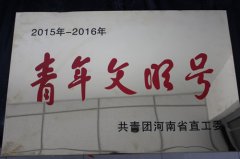 2015年-2016年
青年文明号
共青团河南省直工委